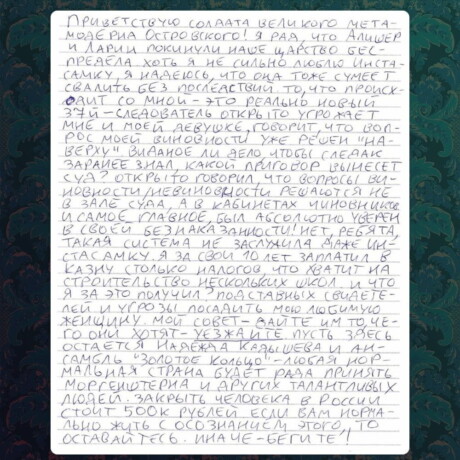 ПРИВЕТСТВУЮ СОЛДАТА ВЕЛИКОГО МЕТА-
МОДЕРНА ОСТРОВСКОГО! Я РАД, ЧТО АЛИШЕР
И ЛАРИН ПОКИНУЛИ НАШЕ ЦАРСТВО БЕС-
ПРЕДЕЛА ХОТЬ Я НЕ СИЛЬНО ЛЮБЛЮ ИНСТА-
САМКУ, Я НАДЕЮСЬ, ЧТО ОНА ТОЖЕ СУМЕЕТ
СВАЛИТЬ БЕЗ ПОСЛЕДСТВИЙ ТО, ЧТО ПРОИСХ-
ОДИТ СО МНОЙ - ЭТО РЕАЛЬНО НОВЫЙ
37Й - СЛЕДОВАТЕЛЬ ОТКРЫТО УГРОЖАЕТ
МНЕ И МОЕЙ ДЕВУШКЕ, ГОВОРИТ, ЧТО ВОП-
РОС МОЕЙ ВИНОВНОСТИ УЖЕ РЕШЕН "НА-
ВЕРХУ" ВИДАНОЕ ЛИ ДЕЛО, ЧТОБЫ СЛЕДАК
ЗАРАНЕЕ ЗНАЛ, КАКОЙ ПРИГОВОР ВЫНЕСЕТ
СУД? ОТКРЫТО ГОВОРИЛ, ЧТО ВОПРОСЫ ВИ-
НОВНОСТИ/НЕВИНОВНОСТИ РЕШАЮТСЯ НЕ
В ЗАЛЕ СУДА, А В КАБИНЕТАХ ЧИНОВНИКОВ
И САМОЕ ГЛАВНОЕ, БЫЛ АБСОЛЮТНО УВЕРЕН
В СВОЕЙ БЕЗНАКАЗАННОСТИ! НЕТ, РЕБЯТА,
ТАКАЯ СИСТЕМА НЕ ЗАСЛУЖИЛА ДАЖЕ ИН-
СТАСАМКУ. Я ЗА СВОИ 10 ЛЕТ ЗАПЛАТИЛ В
КАЗНУ СТОЛЬКО НАЛОГОВ, ЧТО ХВАТИТ НА
СТРОИТЕЛЬСТВО НЕСКОЛЬКИХ ШКОЛ. И ЧТО
Я ЗА ЭТО ПОЛУЧИЛ? ПОДСТАВНЫХ СВИДЕТЕ-
ЛЕЙ И УГРОЗЫ ПОСАДИТЬ МОЮ ЛЮБИМУЮ
ЖЕНЩИНУ МОЙ СОВЕТ - ДАЙТЕ ИМ ТО, ЧЕ-
ГО ОНИ ХОТЯТ - УЕЗЖАЙТЕ ПУСТЬ ЗДЕСЬ
ОСТАЕТСЯ НАДЕЖДА КАДЫШЕВА И АН-
САМБЛЬ "ЗОЛОТОЕ КОЛЬЦО" - ЛЮБАЯ НОР-
МАЛЬНАЯ СТРАНА БУДЕТ РАДА ПРИНЯТЬ
МОРГЕНШТЕРНА И ДРУГИХ ТАЛАНТЛИВЫХ
ЛЮДЕЙ. ЗАКРЫТЬ ЧЕЛОВЕКА В РОССИИ
СТОИТ 500К РУБЛЕЙ ЕСЛИ ВАМ НОРМА-
ЛЬНО ЖИТЬ С ОСОЗНАНИЕМ ЭТОГО, ТО
ОСТАВАЙТЕСЬ. ИНАЧЕ - БЕГИТЕ!